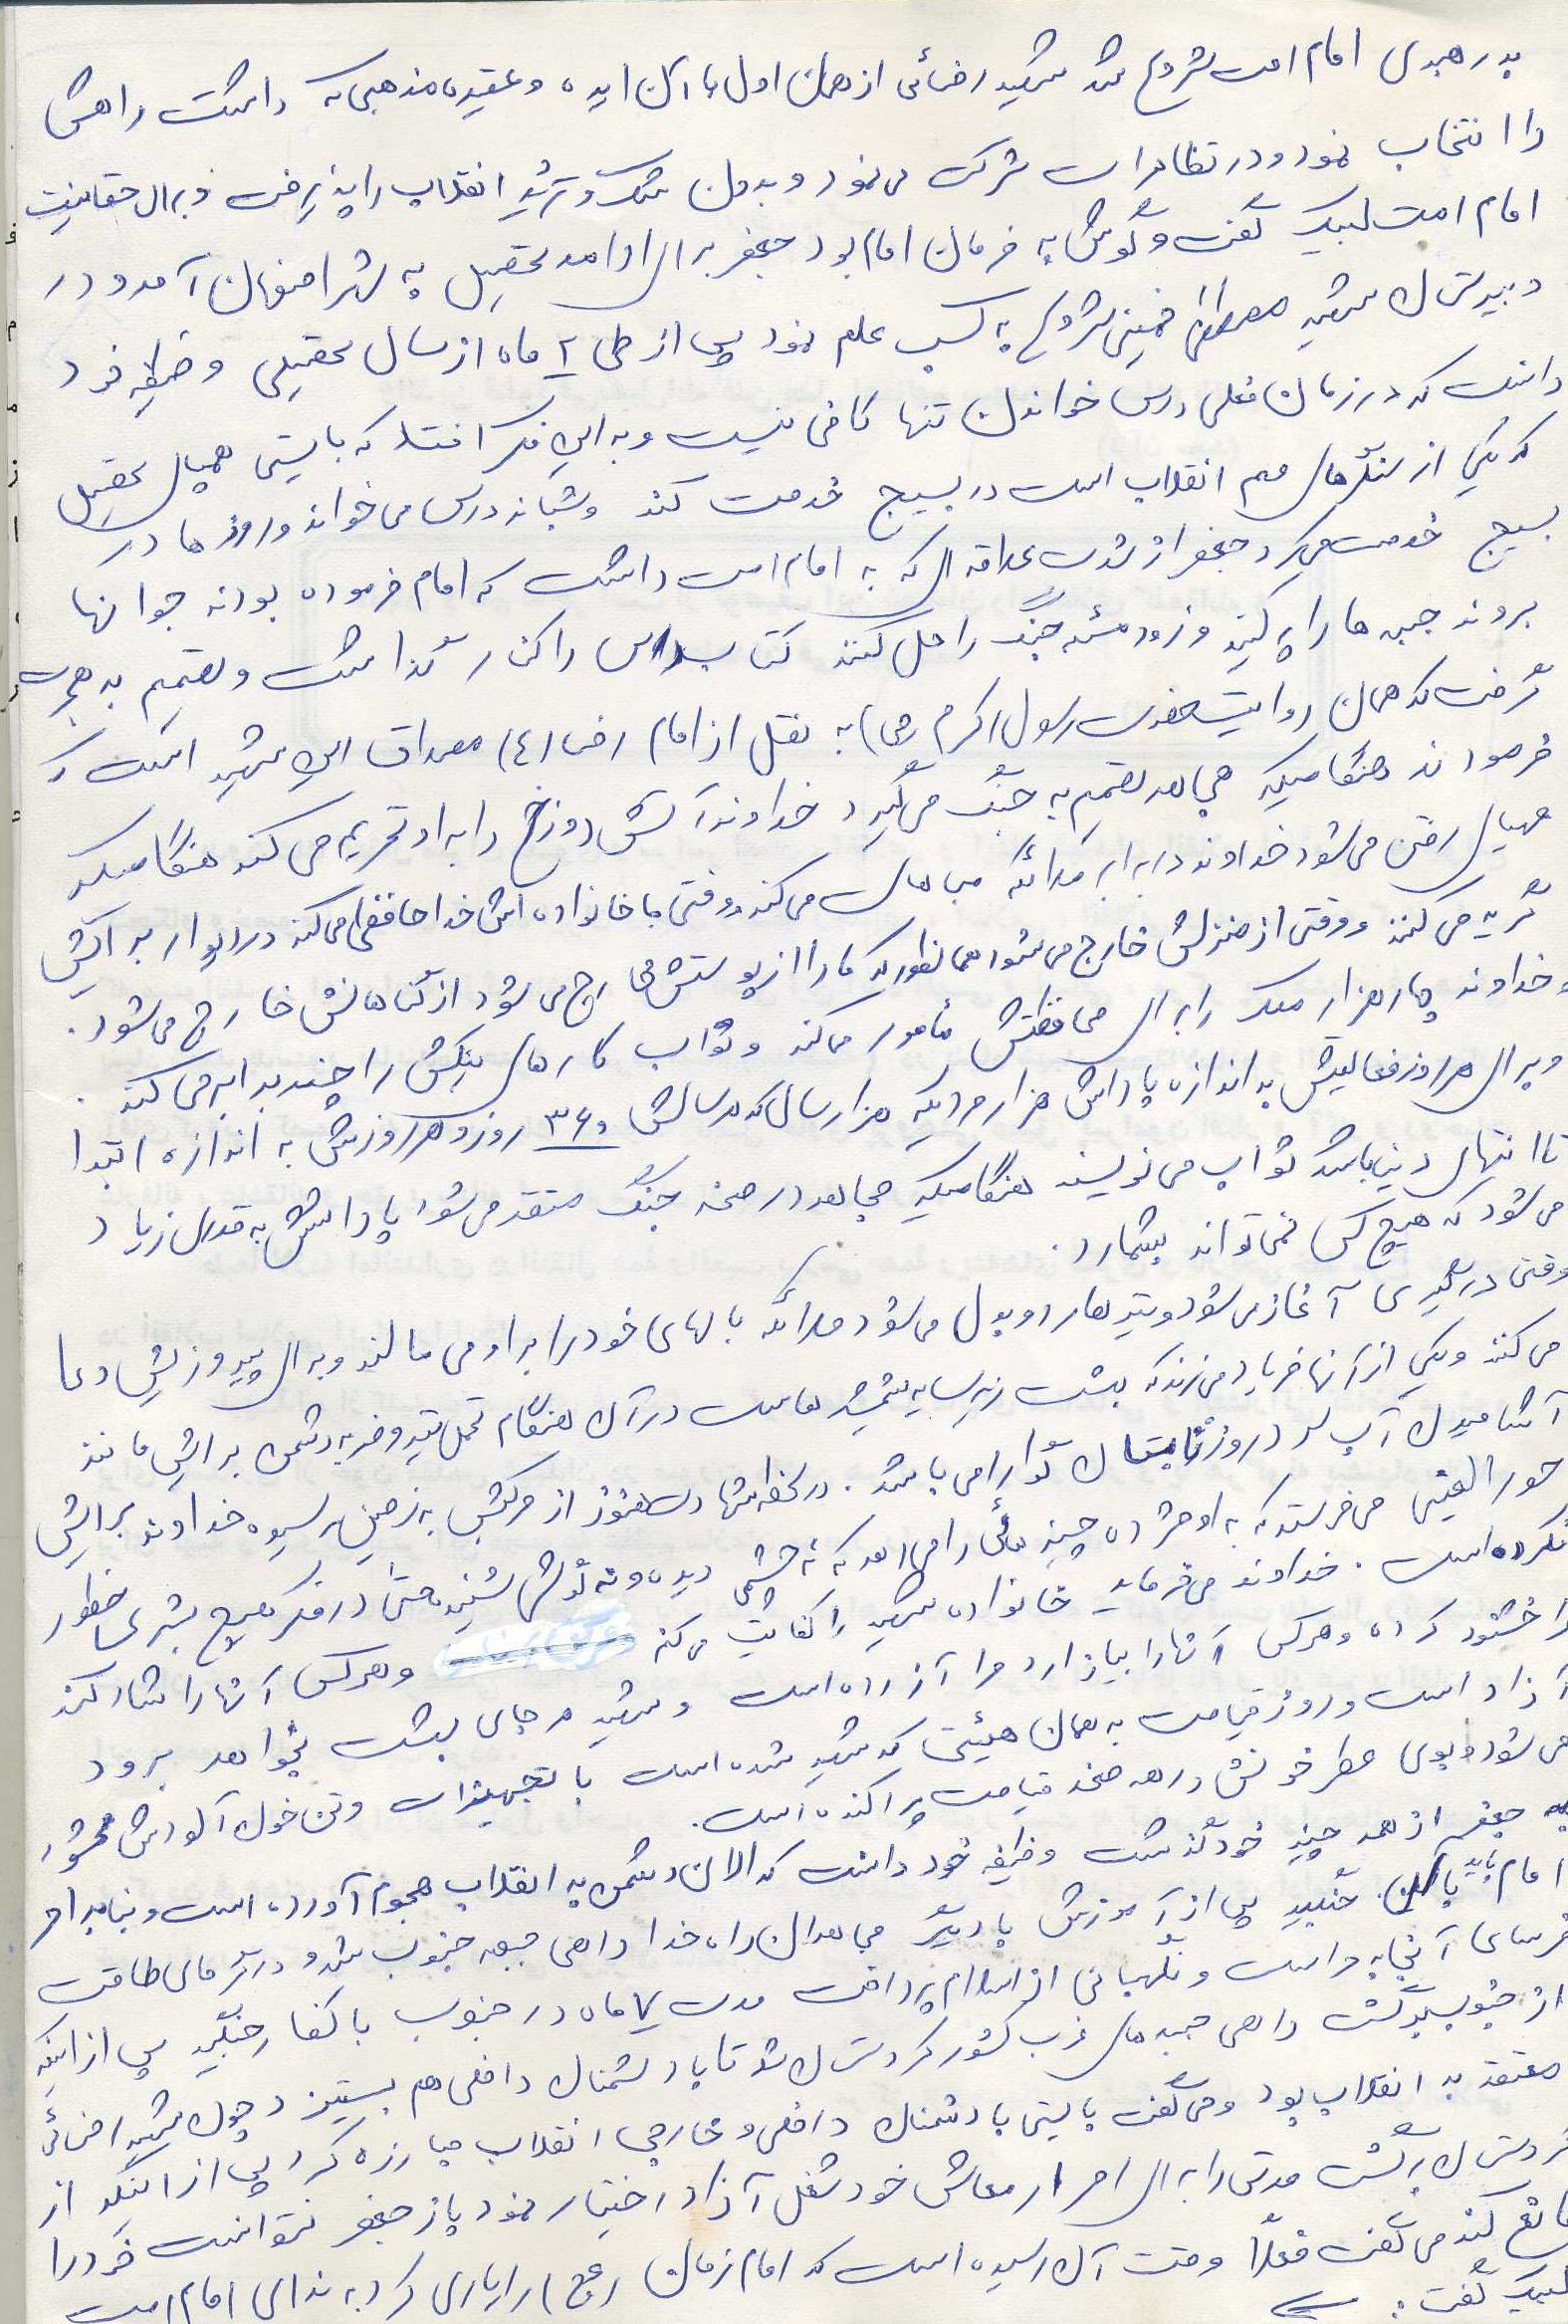 به رهبری امام امت شروع شد شهید رضائی از همان اول با آن ایده و عقیده مذهبی که داشت راهش
را انتخاب نمود و در تظاهرات شرکت می نمود و بدون شک و تردید انقلاب را پذیرفت و برای حقانیت
امام امت لبیک گفت و گوش به فرمان امام بود جعفر برای ادامه تحصیل به شهر اصفهان آمد و در
دبیرستان شهید مصطفی خمینی شروع به کسب علم نمود پس از طی ۲ ماه از سال تحصیلی وظیفه خود
دانست که در زمان فعلی درس خواندن تنها کافی نیست و به این فکر افتاد که بایستی همپای تحصیل
که یکی از سنگرهای مهم انقلاب است در بسیج خدمت کند و شبانه درس می خواند و روزها در
بسیج خدمت می کرد جعفر از شدت علاقه ای که به امام امت داشت که امام فرموده بودند جوانها
بروند جبهه ها را پر کنید و زود مسئله جنگ را حل کنند کتاب درس را کنار گذاشت و تصمیم به هجرت
گرفت که همان روایت حضرت رسول اکرم (ص) به نقل از امام رضا (ع) مصداق این شهید است که
فرمودند هنگامیکه مجاهد تصمیم به جنگ می گیرد خداوند آتش دوزخ را به او تحریم می کند هنگامیکه
مهیای رفتن می شود خداوند در برابر ملائکه مباهات می کند و وقتی با خانواده اش خداحافظی می کند در و دیوار برایش
گریه می کنند و وقتی از منزلش خارج می شود همانطور که مار از پوستش خارج می شود از گناهانش خارج می شود.
خداوند چهار هزار ملک را برای محافظتش مأمور می کند و ثواب کارهای نیکش را چند برابر می کند.
و برای هر روز فعالیتش به اندازه پاداش هزار مردیکه هزار سال که هر سالش ۳۶۰ روز و هر روزش به اندازه ابتدا
تا انتهای دنیا باشد ثواب می نویسند هنگامیکه مجاهد در صحنه جنگ می شود پاداشش به قدری زیاد
می شود که هیچ کس نمی تواند بشمارد.
وقتی درگیری آغاز می شود و تیرها رد و بدل می شود ملائکه بالهای خود را بر او می مالند و برای پیروزیش دعا
می کنند و یکی از آنها فریاد می زند که بهشت زیر سایه شمشیرهاست در آن هنگام تحمل تیر و ضربه دشمن برایش مانند
آشامیدن آب سرد در روز تابستان گوارا می باشد. در لحظه شهادت هنوز از مرکبش به زمین نرسیده خداوند برایش
حورالعین می فرستد که به او مژده چیزهائی را می دهد که نه چشمی دیده و نه گوشی شنیده حتی در فکر هیچ بشری خطور
نکرده است. خداوند می فرماید خانواده شهید را کفایت می کنم و هر کس آنها را شاد کند
مرا خشنود کرده و هر کس آنها را بیازارد مرا آزرده است و شهید هر جای بهشت بخواهد برود
آزاد است و روز قیامت به همان هیئتی که شهید شده است با تجهیزات و تن خون آلودش محشور
می شود و بوی عطر خونش در همه صحنه قیامت پراکنده است.
جعفر از همه چیز خود گذشت وظیفه خود دانست که الان دشمن به انقلاب هجوم آورده است و بنابر امر
امام باید با آن جنگید پس از آموزش با دیگر مجاهدان راه خدا راهی جبهه جنوب شد و در گرمای طاقت
فرسای آنجا به حراست و نگهبانی از اسلام پرداخت مدت ۷ ماه در جنوب با کفار جنگید پس از اینکه
از جنوب برگشت راهی جبهه های غرب کشور کردستان شد تا با دشمنان داخلی هم بستیزد چون شهید رضائی
معتقد به انقلاب بود و می گفت بایستی با دشمنان داخلی و خارجی انقلاب مبارزه کرد پس از اینکه از
کردستان برگشت مدتی را برای امرار معاش خود شغل آزاد اختیار نمود باز جعفر نتوانست خود را
قانع کند می گفت فعلاً وقت آن رسیده است که امام زمان (عج) را یاری کرد به ندای امام امت
لبیک گفت: